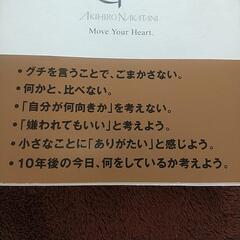 AKIHIRO NAKATANI
Move Your Heart.
・グチを言うことで、ごまかさない。
・何かと、比べない。
・「自分が何向きか」を考えない。
・「嫌われてもいい」と考えよう。
・小さなことに「ありがたい」と感じよう。
・10年後の今日、何をしているか考えよう。